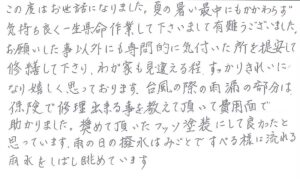 この度はお世話になりました。夏の暑い最中にもかかわらず
気持ち良く一生懸命作業して下さいまして有難うございました。
お願いした事以外にも専門的に気付いた所を提案して
修繕して下さり、わが家も見違える程、すっかりきれいに
なり嬉しく思っております。台風の際の雨漏の部分は
保険で修理出来る事を教えて頂いて費用面で
助かりました。奨めて頂いたフッソ塗装にして良かったと
思っています。雨の日の撥水はみごとですべる様に流れる
雨水をしばし眺めています